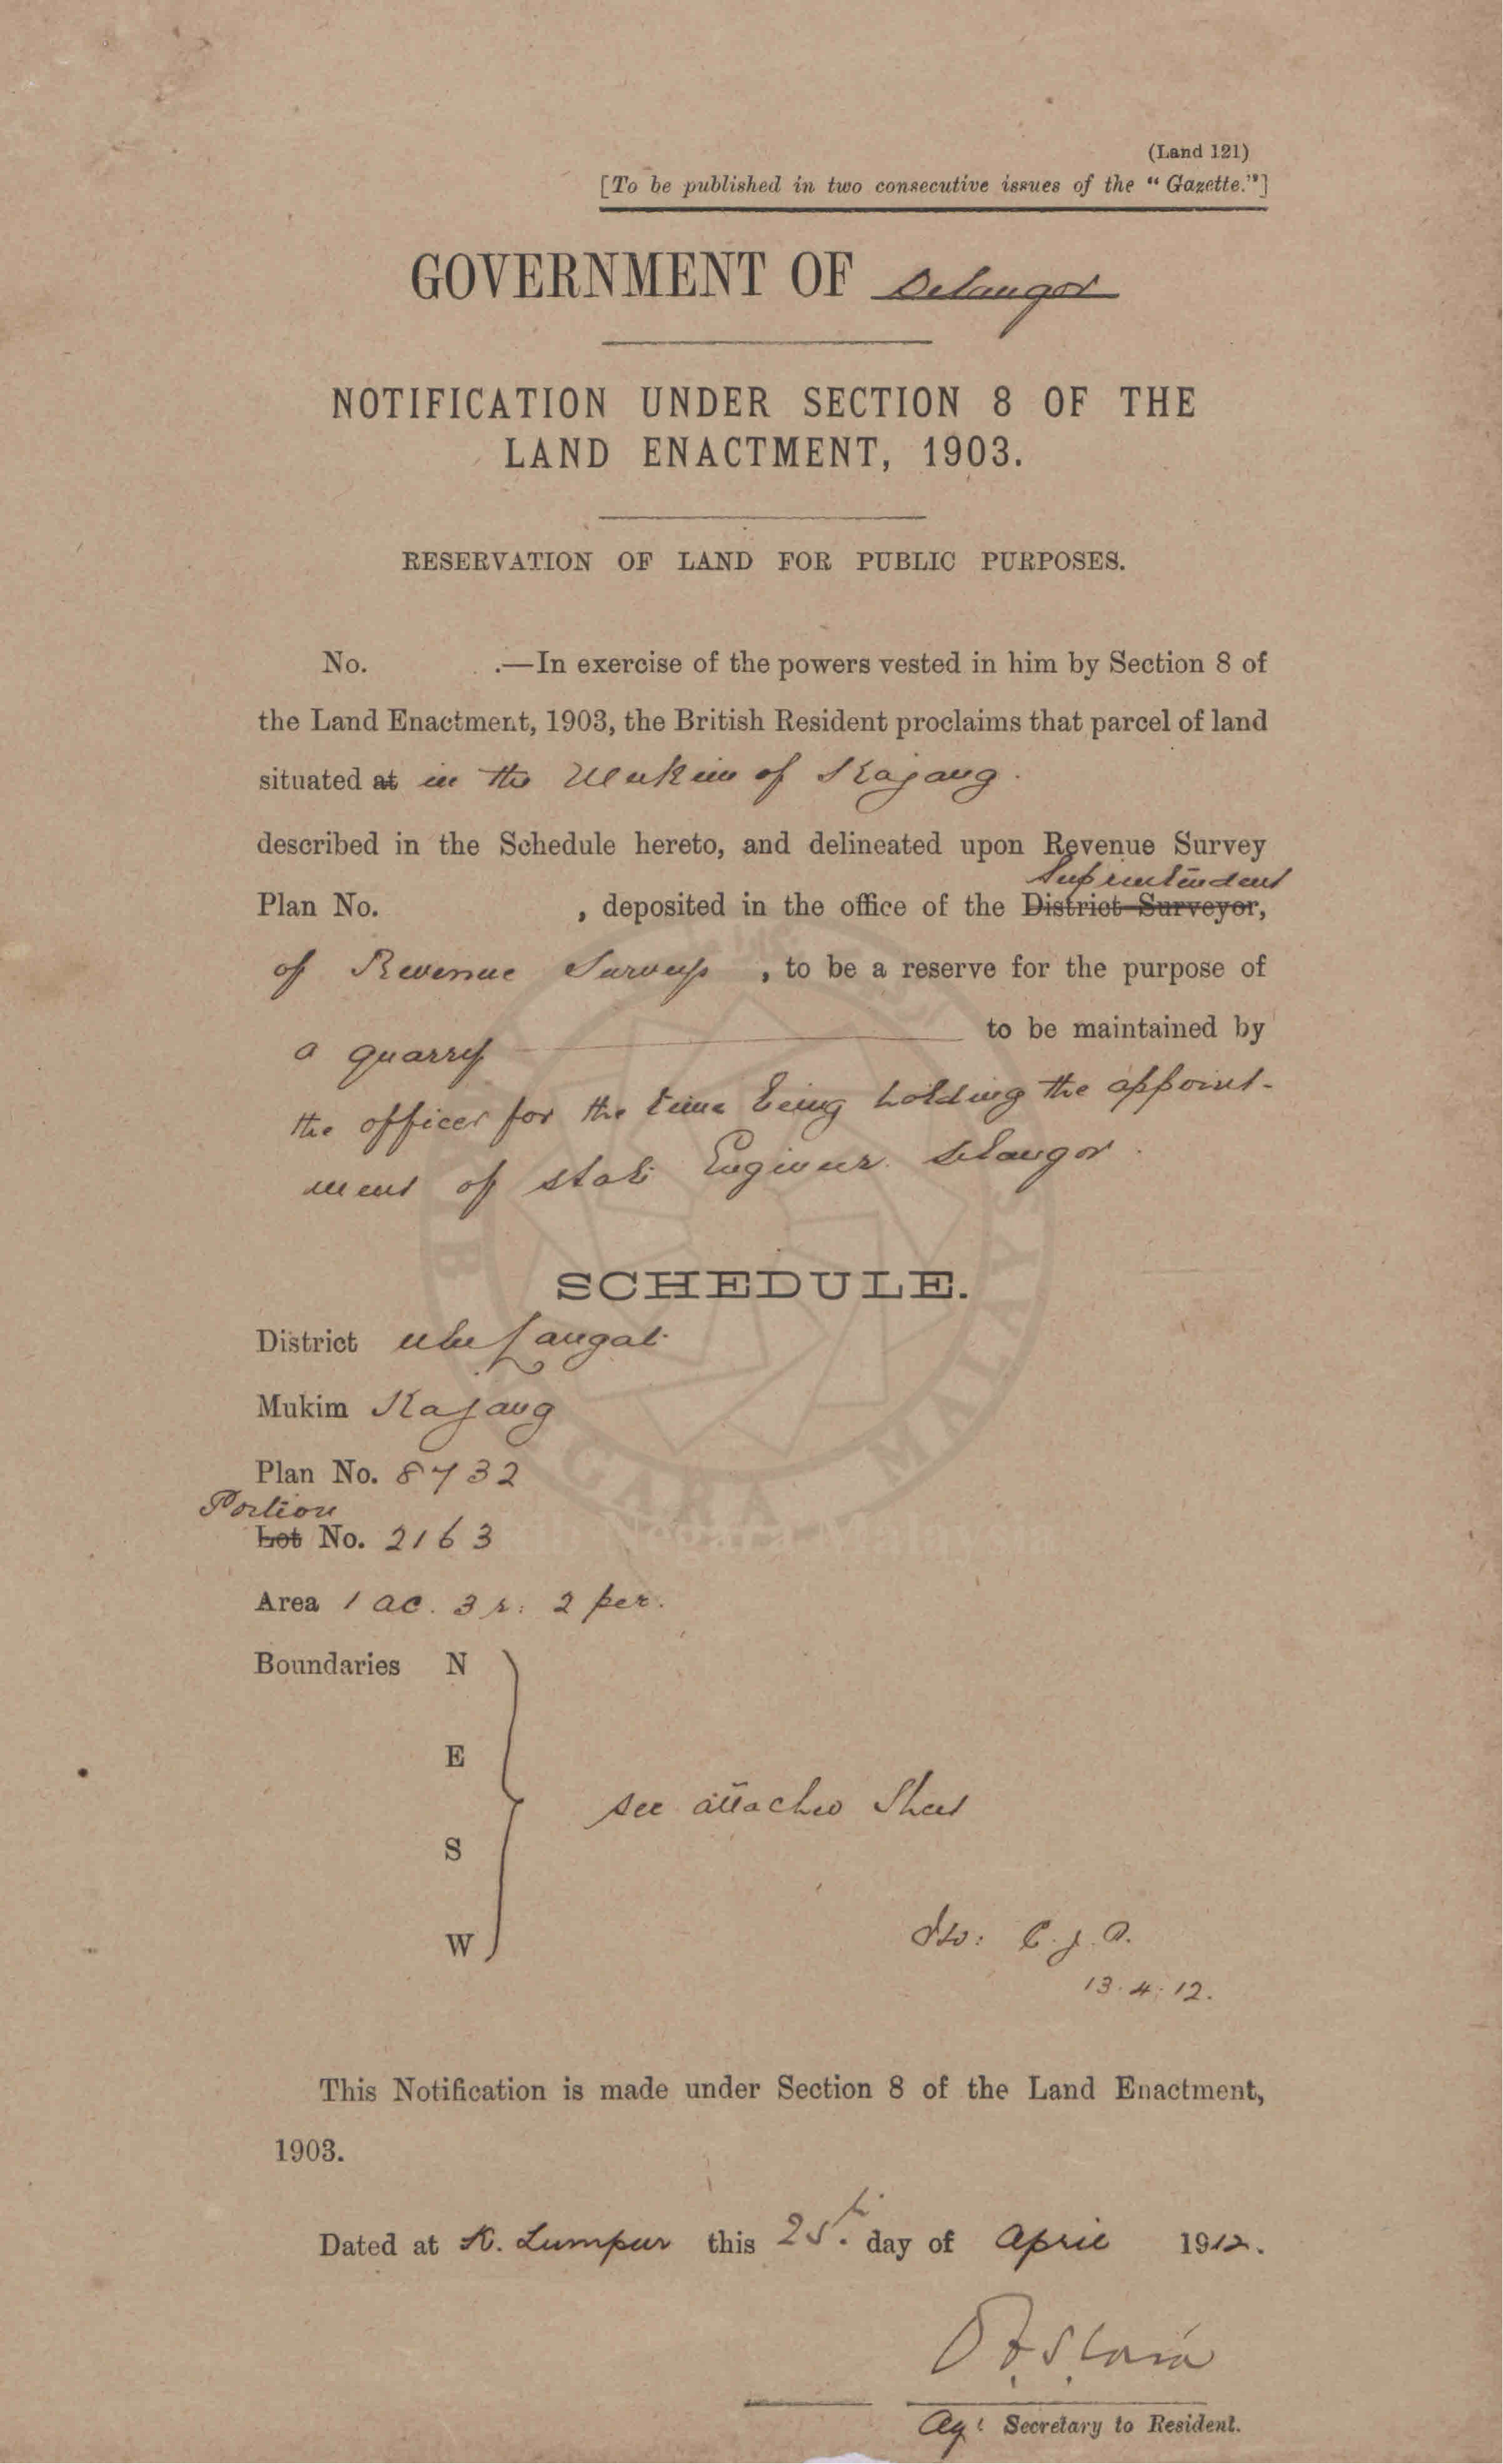 (Land 121)
[To be published in two consecutive issues of the "Gazette."]
GOVERNMENT OF Selangor
NOTIFICATION UNDER SECTION 8 OF THE
LAND ENACTMENT, 1903.
RESERVATION OF LAND FOR PUBLIC PURPOSES.
No. .—In exercise of the powers vested in him by Section 8 of
the Land Enactment, 1903, the British Resident proclaims that parcel of land
situated at in the Mukim of Kajang.
described in the Schedule hereto, and delineated upon Revenue Survey
Superintendent
Plan No. , deposited in the office of the District Surveyor,
of Revenue Surveys , to be a reserve for the purpose of
a quarry to be maintained by
the officer for the time being holding the appoint-
ment of State Engineer Selangor.
SCHEDULE.
District Ulu Langat
Mukim Kajang
Plan No. 8732
Portion
Lot No. 2163
Area 1 ac. 3 r. 2 per.
Boundaries N
E
see attached Sheet
S
W
C.J.A.
13.4.12.
This Notification is made under Section 8 of the Land Enactment,
1903.
Dated at K. Lumpur this 25th day of April 1912.
Ag: Secretary to Resident.